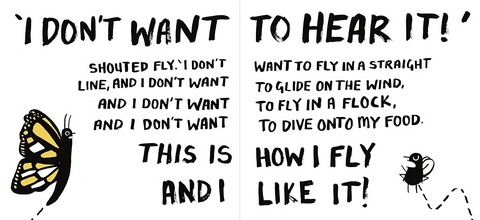 'I DON'T WANT TO HEAR IT!'
SHOUTED FLY. 'I DON'T WANT TO FLY IN A STRAIGHT
LINE, AND I DON'T WANT TO GLIDE ON THE WIND,
AND I DON'T WANT TO FLY IN A FLOCK,
AND I DON'T WANT TO DIVE ONTO MY FOOD.
THIS IS HOW I FLY
AND I LIKE IT!